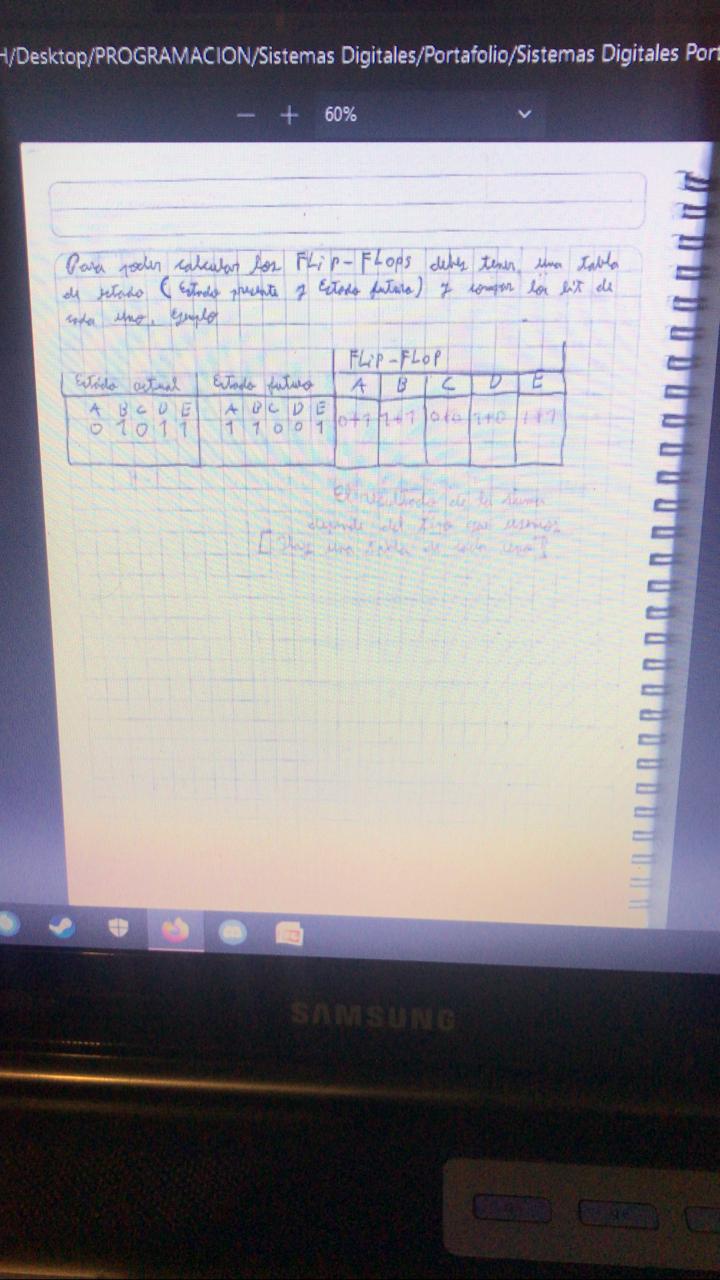 H/Desktop/PROGRAMACION/Sistemas Digitales/Portafolio/Sistemas Digitales Port
− + 60%
Para poder calcular los FLiP-FLops debes tener una tabla
de estado (Estado presente y Estado futuro) y los bit de
cada uno, ejemplo
FLiP-FLOP
Estado actual Estado futuro A B C D E
A B C D E A B C D E 0+1 1+1 0+0 1+0 1+1
0 1 0 1 1 1 1 0 0 1
El resultado de la suma
depende del tipo que usemos
[Hay una tabla de cada uno]
SAMSUNG